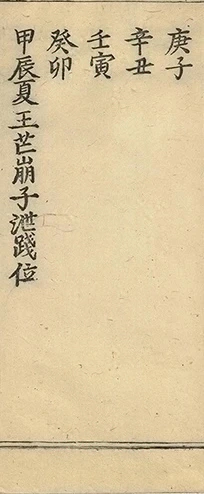 庚子
辛丑
壬寅
癸卯
甲辰夏王芒崩子泄踐位